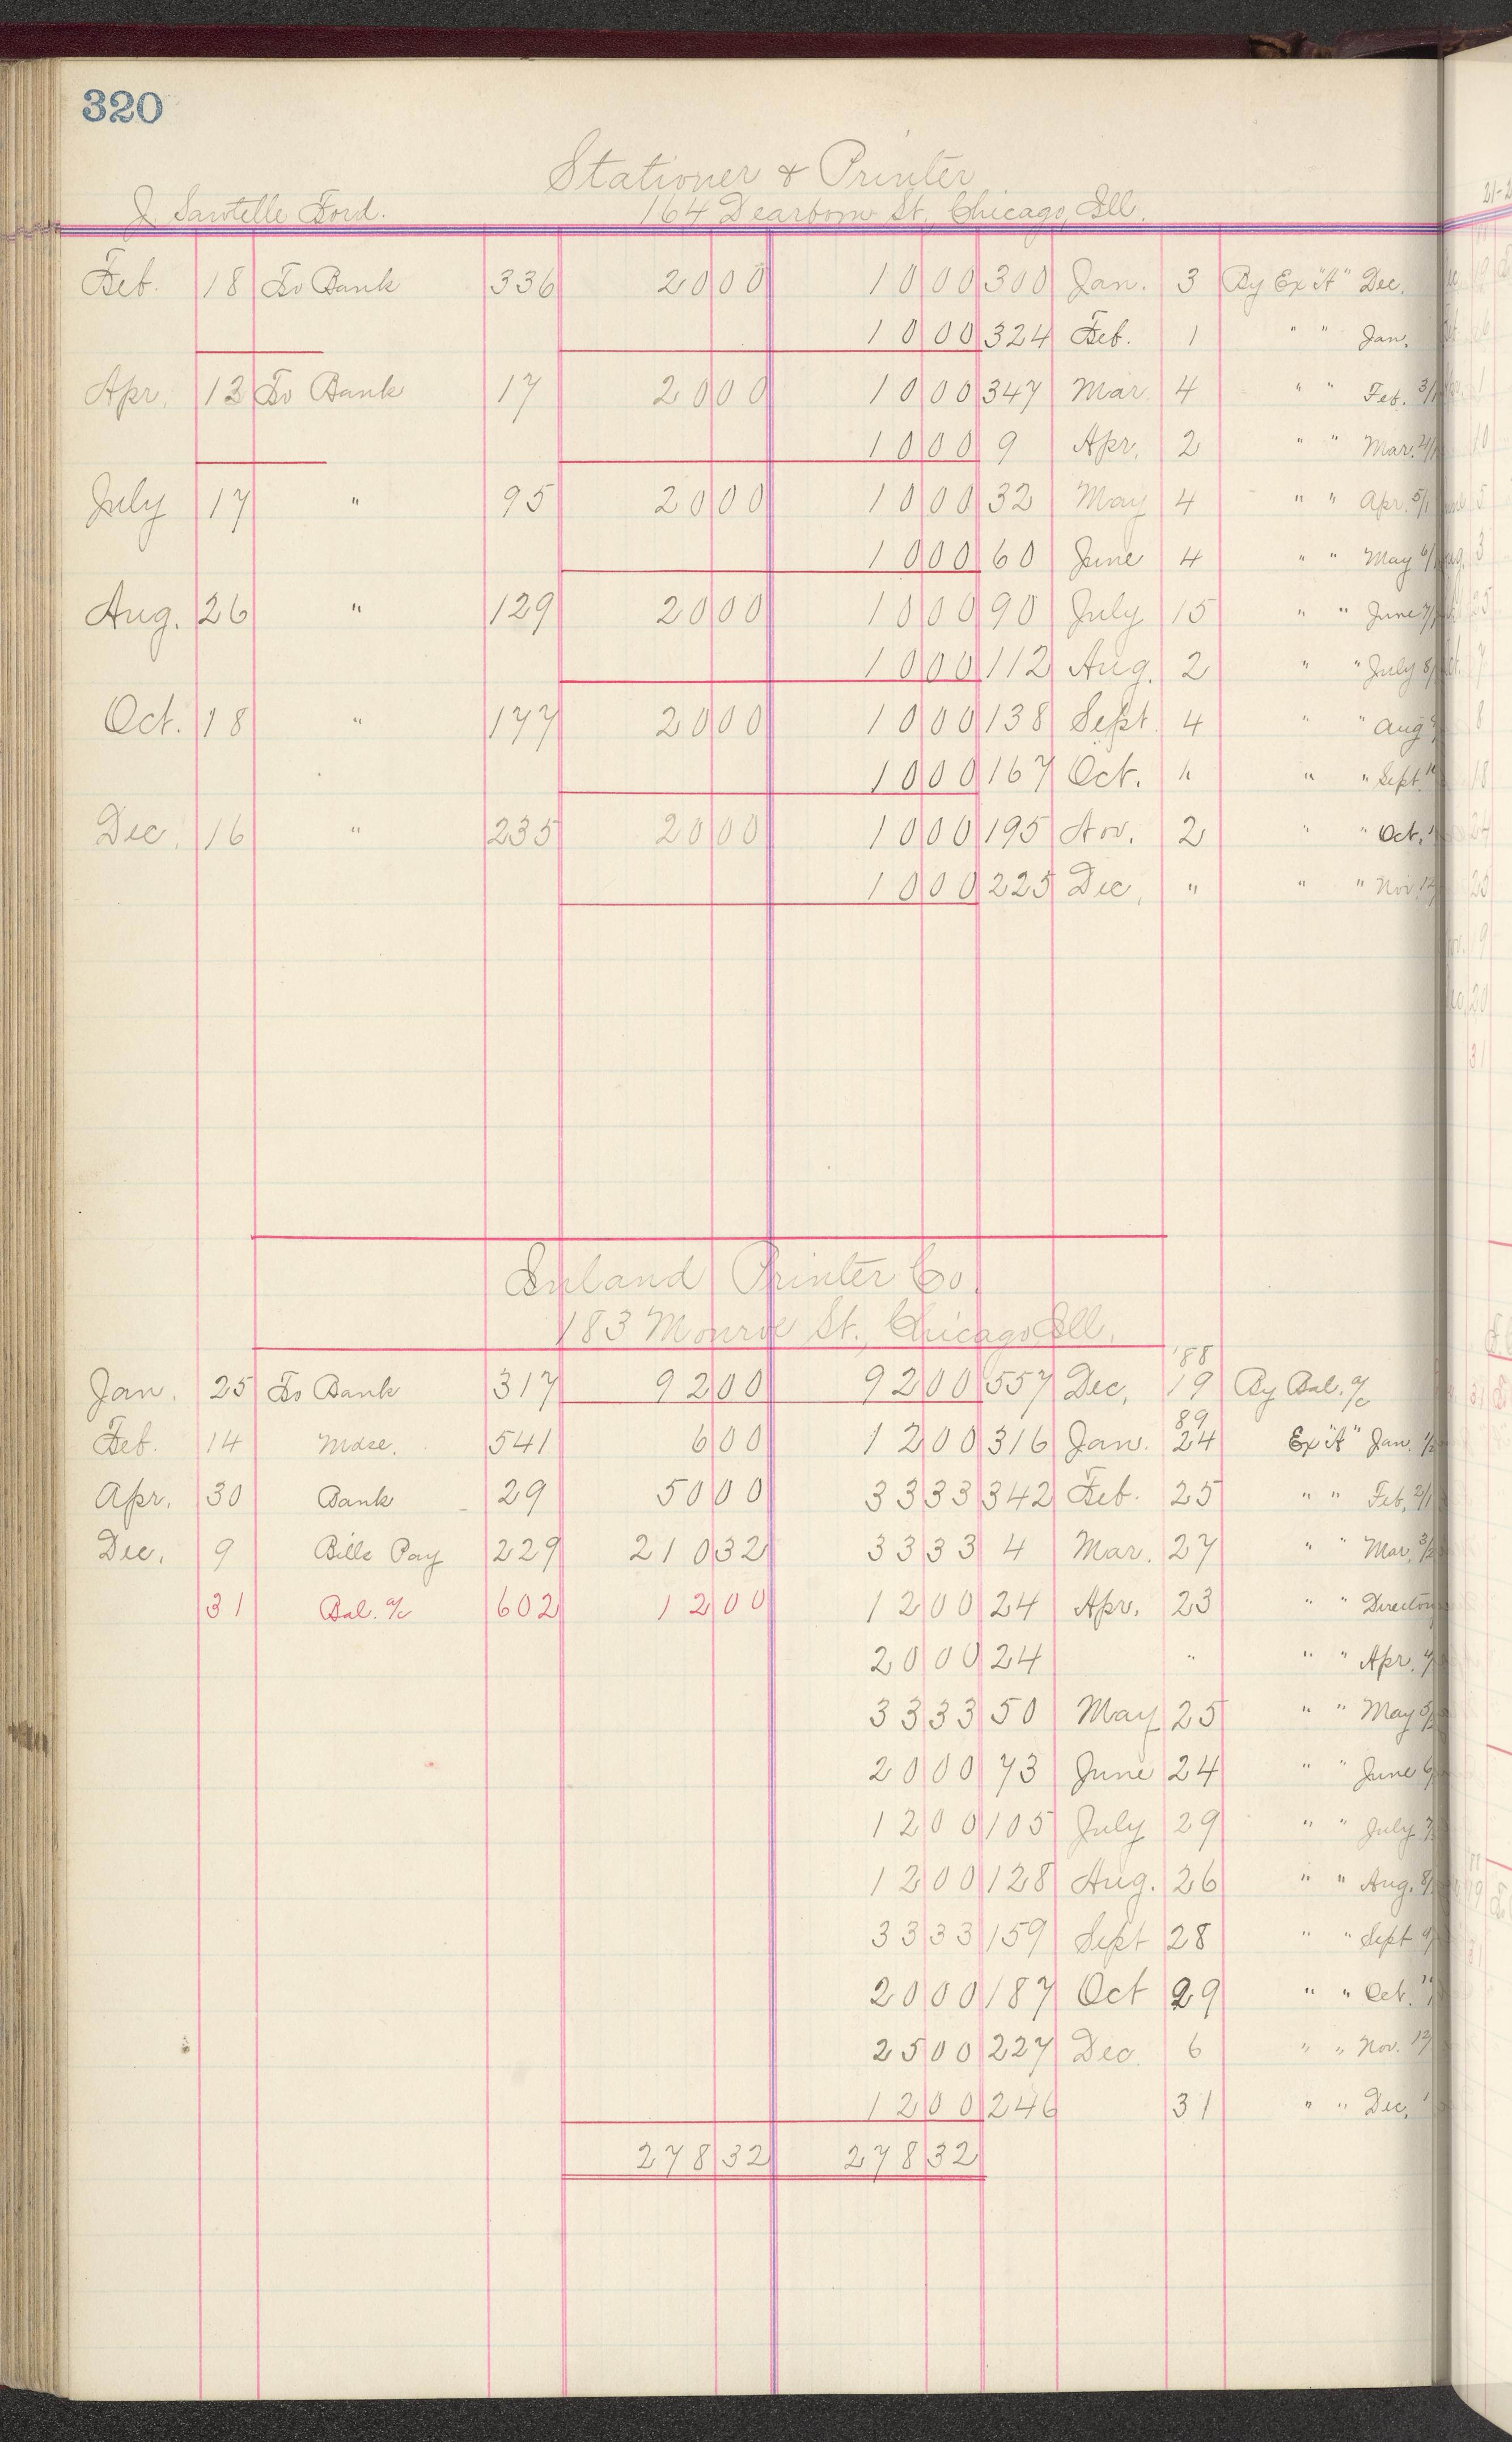 320
Stationer & Printer
J. Sawtelle Ford. 164 Dearborn St., Chicago, Ill.
Feb. 18 To Bank 336 20 00 10 00 300 Jan. 3 By Ex "A" Dec.
10 00 324 Feb. 1 " " Jan.
Apr. 12 To Bank 17 20 00 10 00 347 Mar 4 " " Feb. 3/1
10 00 9 Apr. 2 " " Mar. 4/1
July 17 " 95 20 00 10 00 32 May 4 " " Apr. 5/1
10 00 60 June 4 " " May 6/
Aug. 26 " 129 20 00 10 00 90 July 15 " " June 7/
10 00 112 Aug. 2 " " July 8/
Oct. 18 " 177 20 00 10 00 138 Sept 4 " " Aug
10 00 167 Oct. 1 " " Sept.
Dec. 16 " 235 20 00 10 00 195 Nov. 2 " " Oct.
10 00 225 Dec. " " " Nov.
Inland Printer Co.
183 Monroe St., Chicago Ill.
'88
Jan. 25 To Bank 317 92 00 92 00 557 Dec. 19 By Bal. a/c
89
Feb. 14 Mdse. 541 6 00 12 00 316 Jan. 24 Ex "A" Jan.
Apr. 30 Bank 29 50 00 33 33 342 Feb. 25 " " Feb. 2/1
Dec. 9 Bills Pay 229 210 32 33 33 4 Mar. 27 " " Mar. 3/
31 Bal. a/c 602 12 00 12 00 24 Apr. 23 " " Director
20 00 24 " " " Apr.
33 33 50 May 25 " " May 5/
20 00 73 June 24 " " June
12 00 105 July 29 " " July
12 00 128 Aug. 26 " " Aug. 8/
33 33 159 Sept 28 " " Sept
20 00 187 Oct 29 " " Oct.
25 00 227 Dec. 6 " " Nov.
12 00 246 31 " " Dec.
278 32 278 32